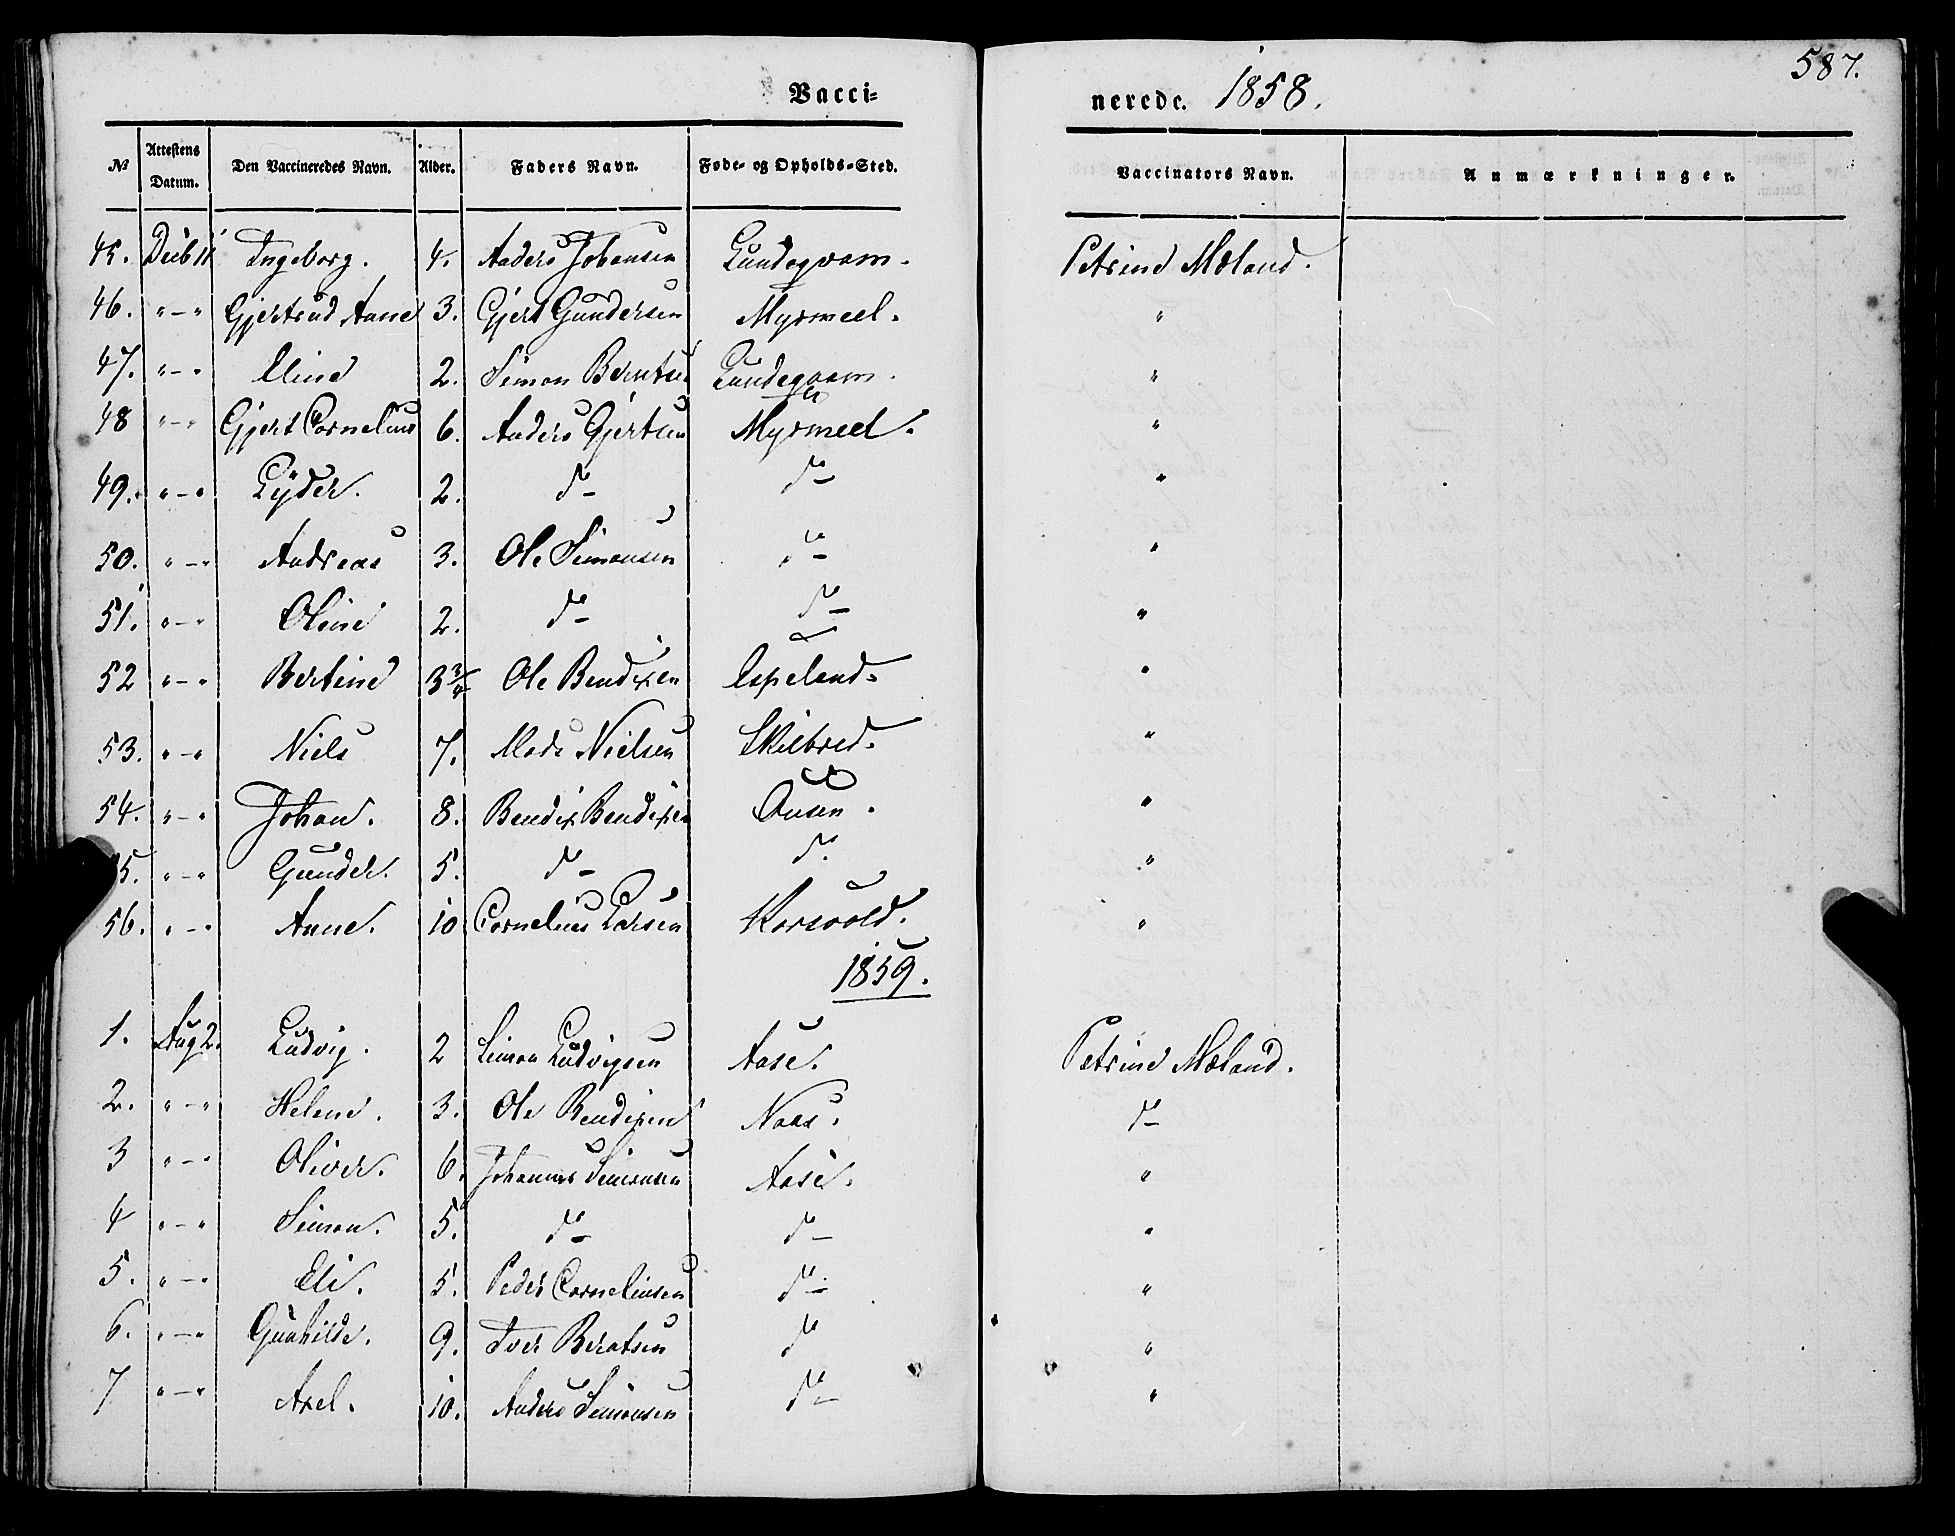 Vacci-
nerede. 1858.
587.
№ Attestens Datum. Den Vaccineredes Navn. Alder. Faders Navn. Føde- og Opholds-Sted. Vaccinators Navn. Anmærkninger.
45. Decb 11 Ingeborg. 4. Anders Johansen Lundeqvam. Petrine Mæland.
46. "-" Gjertrud Anne 3. Gjert Gundersen Myrmeel. "
47. "-" Eline 2. Simon Berntsen Lundeqvam. "
48 "-" Gjert Cornelius 6. Anders Gjertsen Myrmeel. "
49. "-" Lÿder. 2. d°- d°- "
50. "-" Andreas 3. Ole Simonsen d°- "
51. "-" Oline 2. d°- d°- "
52 "-" Bertine 3 3/4 Ole Bendixen Espeland. "
53. "-" Niels 7. Mads Nielsen Skilbred. "
54. "-" Johan. 8. Bendix Bendixen Ousen. "
55. "-" Gunder. 5. d°- d°. "
56. "-" Anne. 10 Cornelius Larsen Korsvold. "
1859.
1. Aug 2. Ludvig. 2 Simon Ludvigsen Aase. Petrine Mæland.
2. "-" Helene. 3. Ole Bendixen Naas. d°-
3 "-" Oliver. 6. Johannes Simonsen Aase. "
4 "-" Simon. 5. d°- d°- "
5. "-" Eli. 5. Peder Corneliusen d°- "
6. "-" Gunhilde. 9. Iver Berntsen d° "
7 "-" Axel. 10. Anders Simonsen d°- "